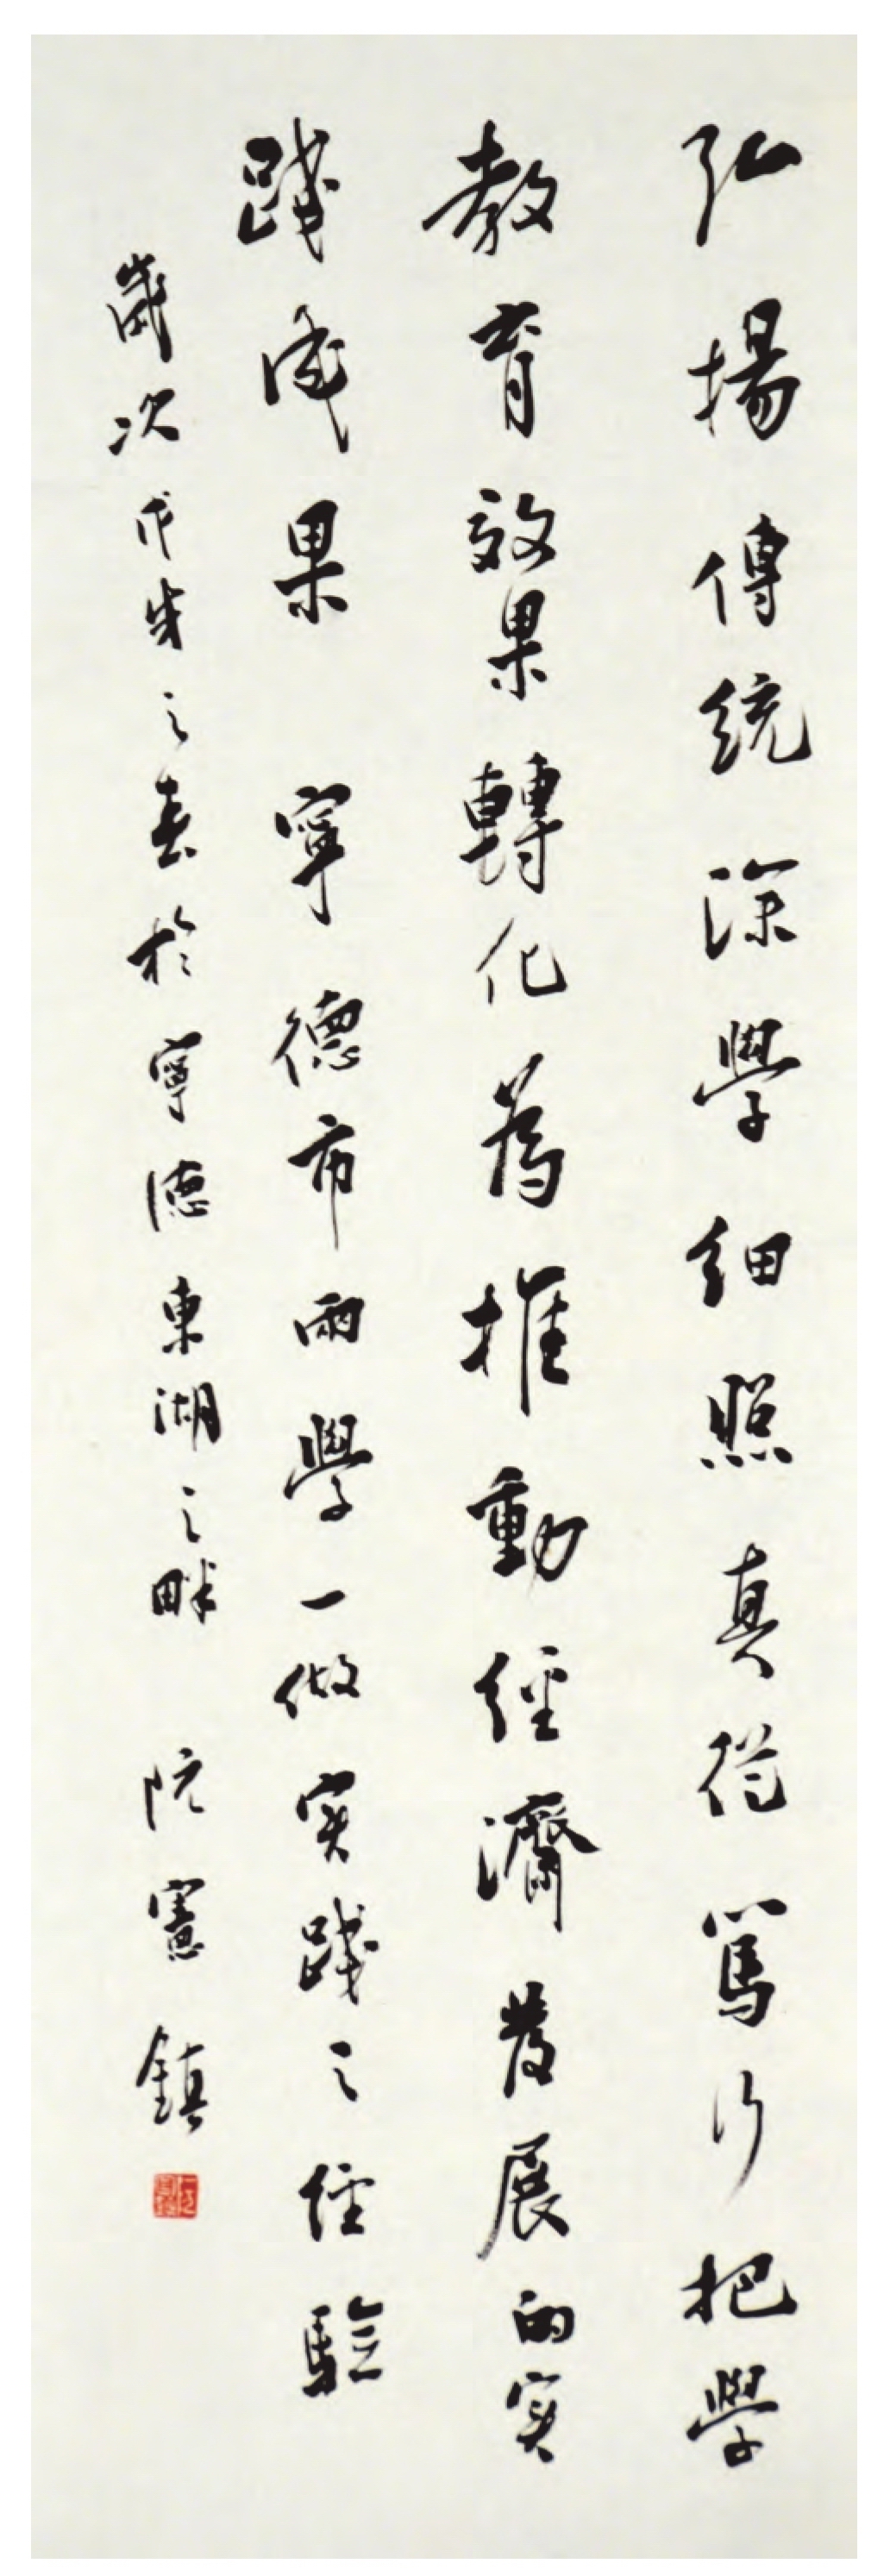 弘揚傳統深學細照真從篤行把學
教育效果轉化為推動經濟發展的实
踐成果 寧德市兩學一做实踐之經驗
歲次戊戌之春於寧德東湖之畔 阮憲鎮